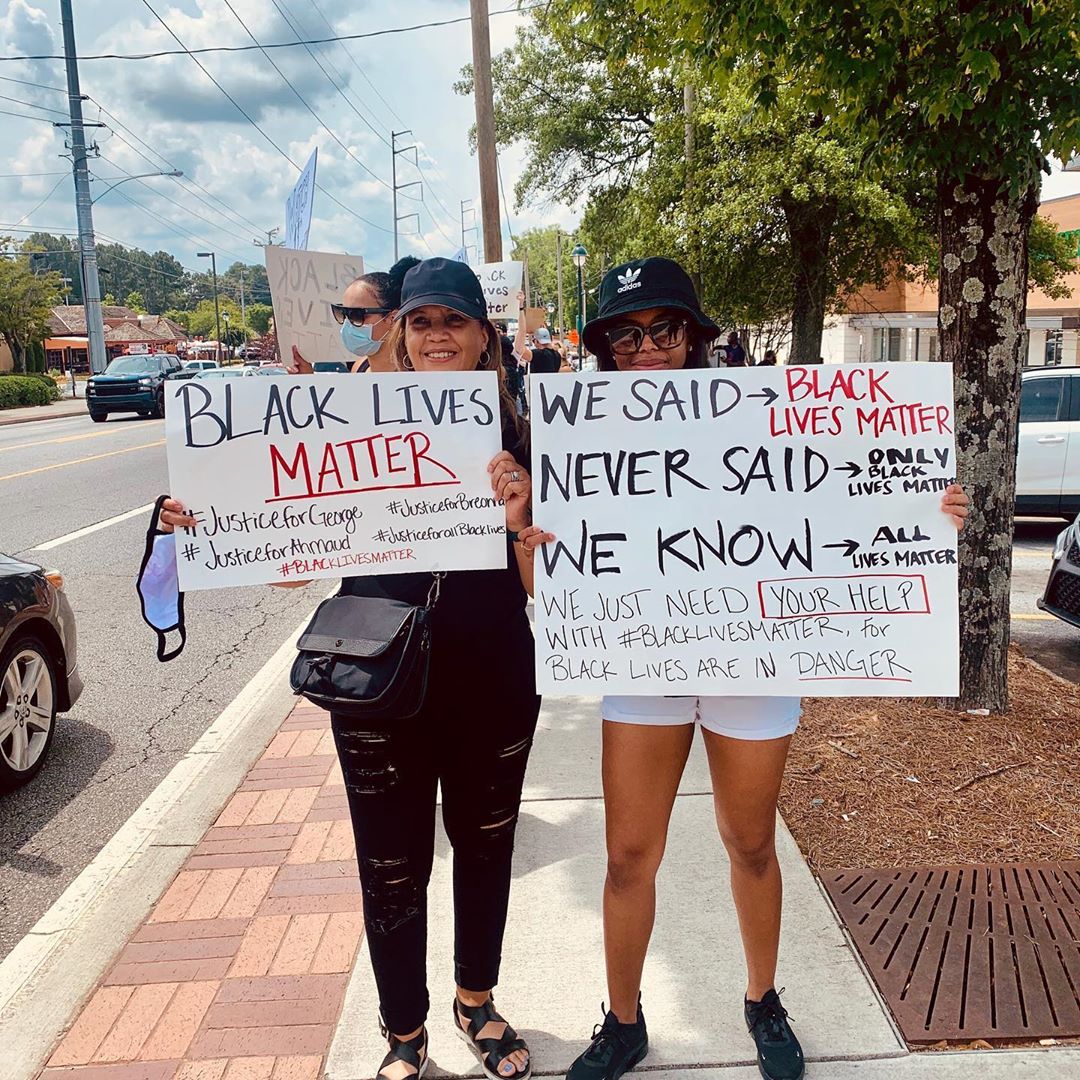 BLACK
LIVES
BLACK
LIVES
MATTER
adidas
BLACK LIVES
MATTER
#JusticeforGeorge
#JusticeforBreonna
#JusticeforAhmaud
#JusticeforallBlacklives
#BLACKLIVESMATTER
WE SAID → BLACK
LIVES MATTER
NEVER SAID → ONLY
BLACK
LIVES MATTE
WE KNOW → ALL
LIVES MATTER
WE JUST NEED YOUR HELP
WITH #BLACKLIVESMATTER, for
BLACK LIVES ARE IN DANGER